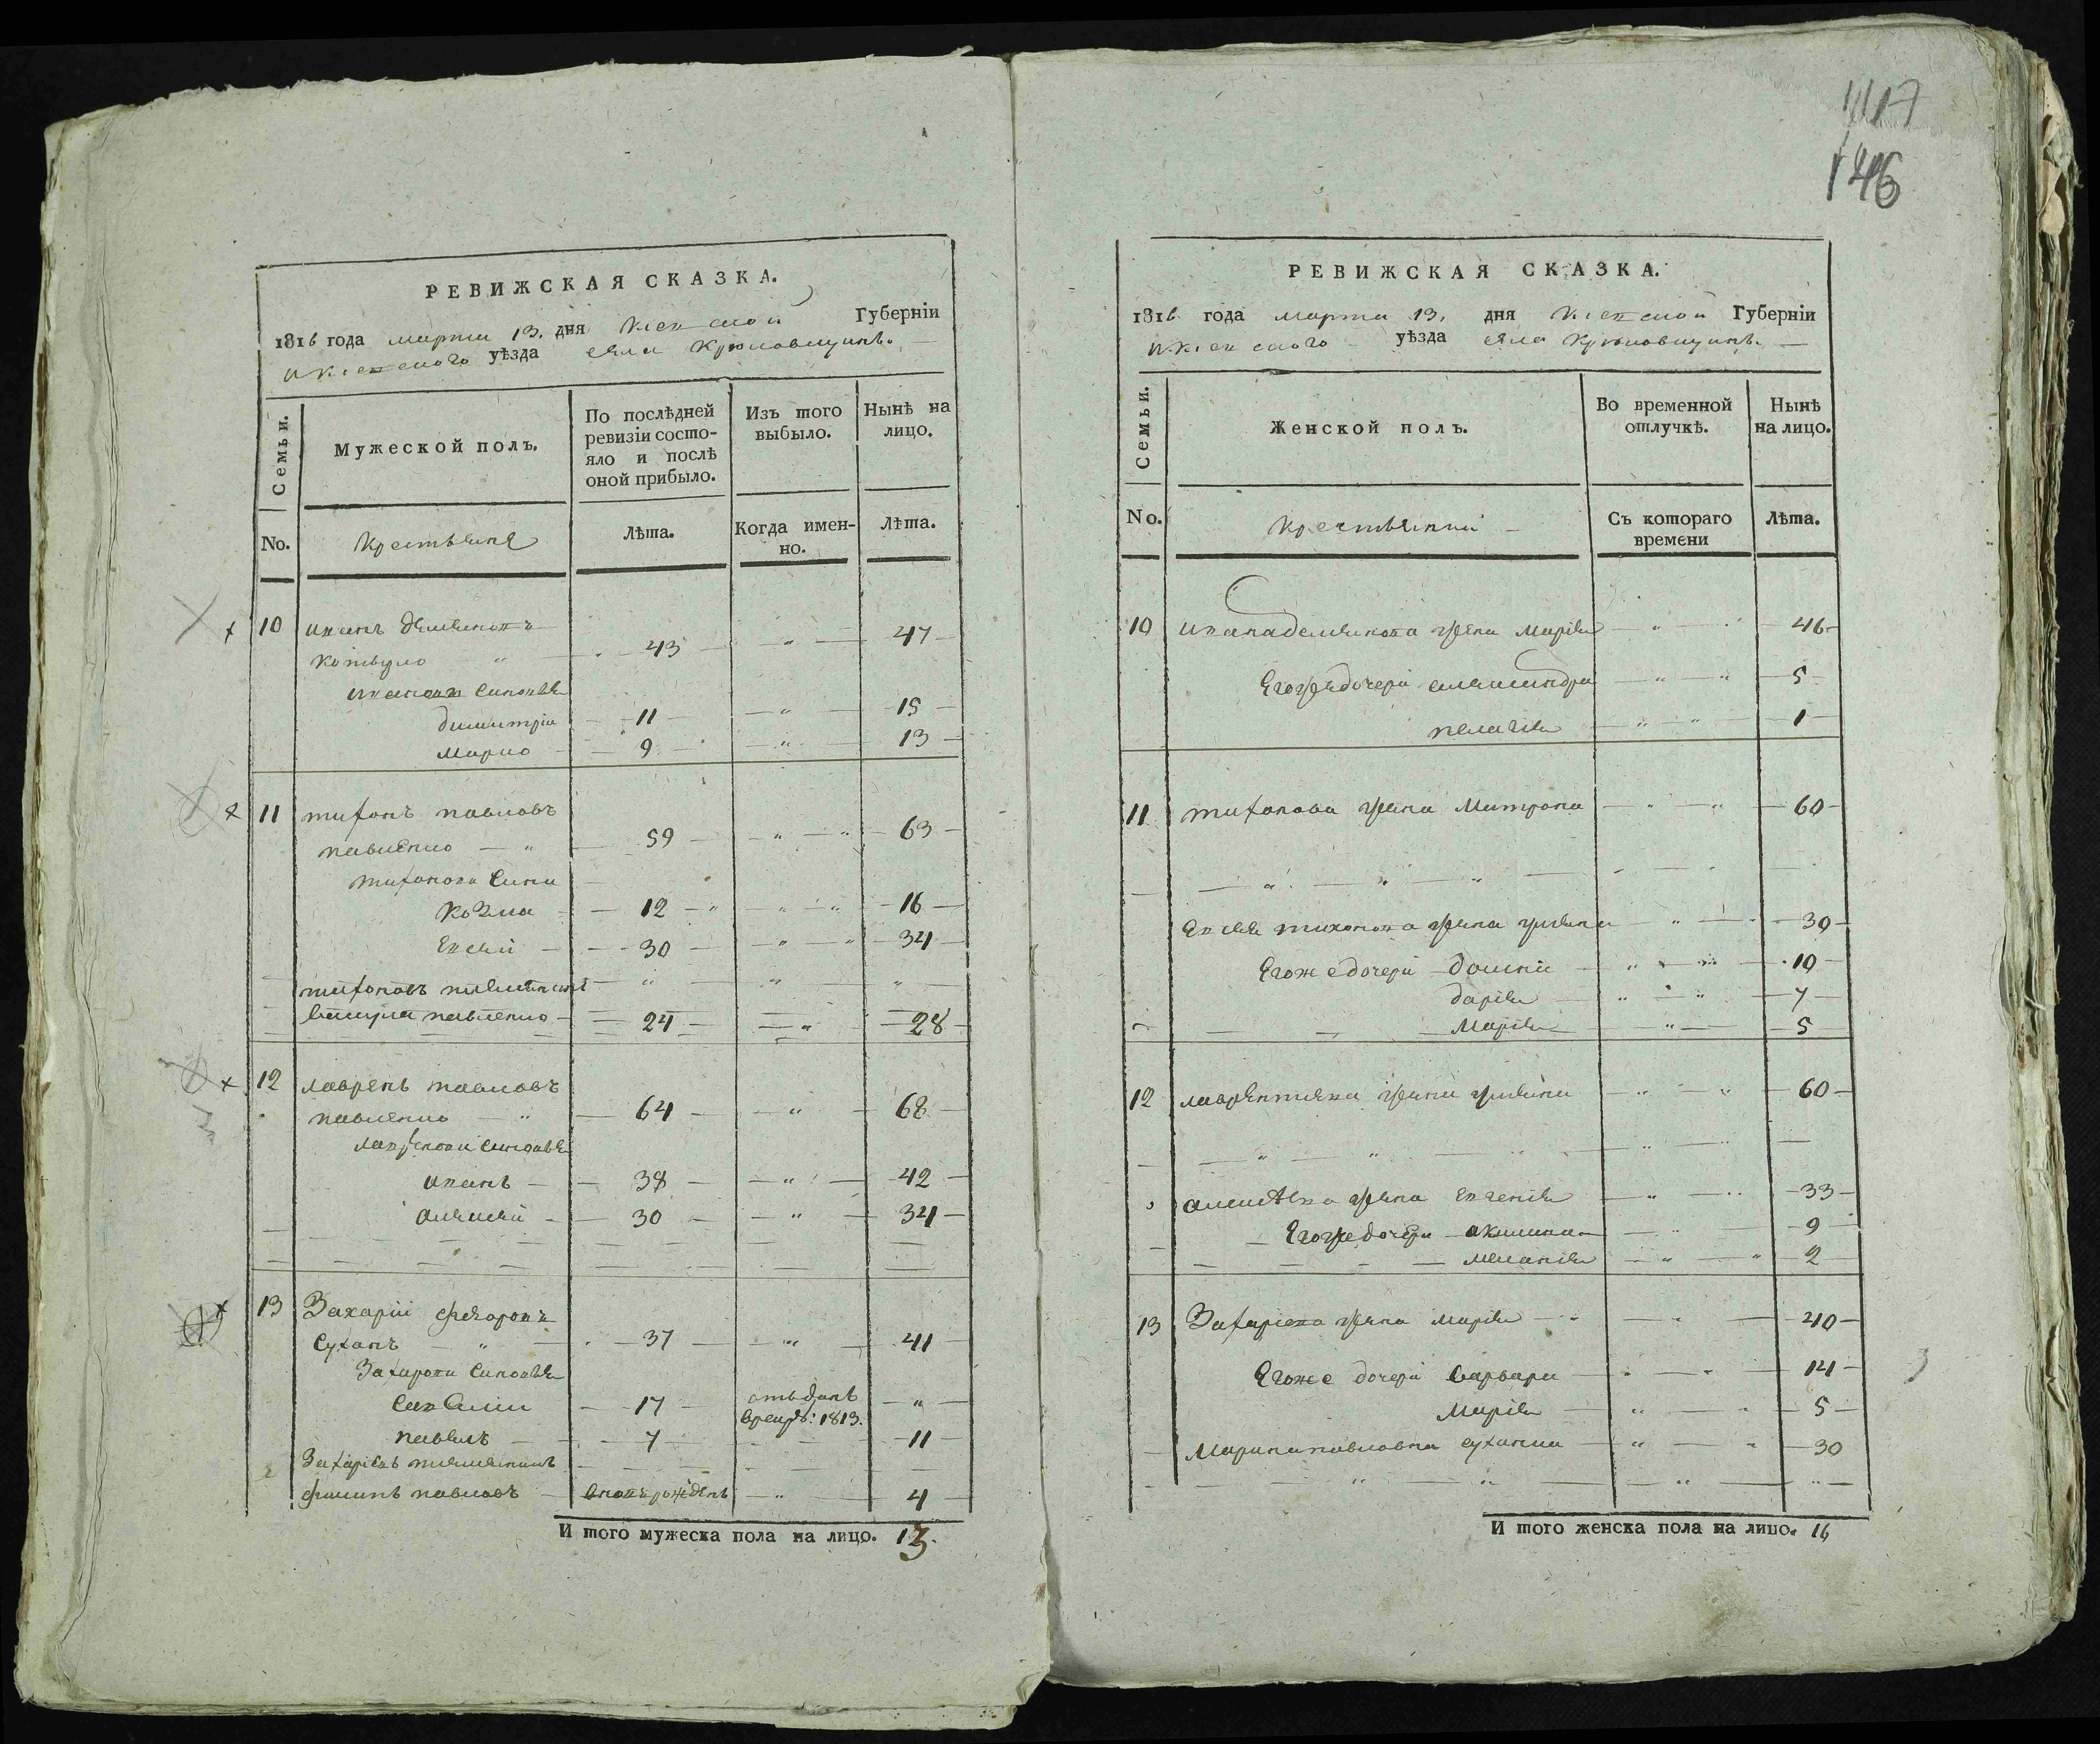 1117
146
РЕВИЖСКАЯ СКАЗКА.
1816 года марта 13. дня Кіевской Губерніи
и Кіевского уѣзда села Крюковщинѣ.
Семьи.
Мужеской полъ.
По послѣдней ревизіи состо-
яло и послѣ
оной прибыло.
Изъ того
выбыло.
Нынѣ на
лицо.
No.
Крестьяне
Лѣта.
Когда имен-
но.
Лѣта.
10 Иванъ Демяновъ
Котвуло 43 47
Ивановы Синовья
Димитрій 11 15
Марко 9 13
11 Тихонъ Павловъ
Павленко 59 63
Тихонови Сини
Козма 12 16
Евсей 30 34
Тихоновъ племянникъ
Павленко 24 28
12 Лаврень Павловъ
Павленко 64 68
Лавренови Синовья
Иванъ 38 42
Алексей 30 34
13 Захарій Федоровъ
Суханъ 37 41
Захарови Синовья
Савелій 17 отъданъ
врекрѣ: 1813.
Павелъ 7 11
Захаріевъ племянникъ
Филипъ Павловъ вновъ рожденъ 4
И того мужеска пола на лицо. 13.
РЕВИЖСКАЯ СКАЗКА.
1816 года марта 13. дня Кіевской Губерніи
и Кіевского уѣзда села Крюковщинѣ.
Семьи.
Женской полъ.
Во временной
отлучкѣ.
Нынѣ
на лицо.
No.
Крестьянки
Съ котораго
времени
Лѣта.
10 Ивана Демянова жена Марія 46
Егожъ дочери Александра 5
Пелагія 1
11 Тихонова жена Митрона 60
Евсея Тихонова жена Уляна 30
Егоже дочери Домникія 10
Дарія 7
Марія 5
12 Лаврентіева жена Уляна 60
Алексѣева жена Евгенія 33
Егоже дочери Акилина 9
Меланія 2
13 Захаріева жена Марія 40
Егоже дочери Варвара 14
Марія 5
Марина Павловна Суханка 30
И того женска пола на лицо. 16